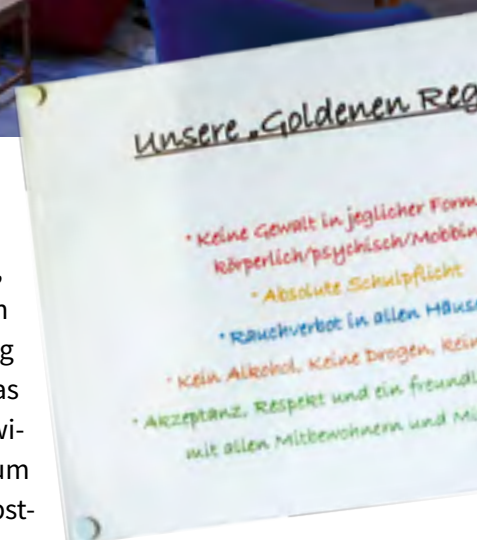 Unsere „Goldenen Reg
• Keine Gewalt in jeglicher Form
körperlich/psychisch/Mobbin
• Absolute Schulpflicht
• Rauchverbot in allen Häuse
• Kein Alkohol, Keine Drogen, kein
• Akzeptanz, Respekt und ein freundl
mit allen Mitbewohnern und Mi
n
g
as
wi-
um
ost-